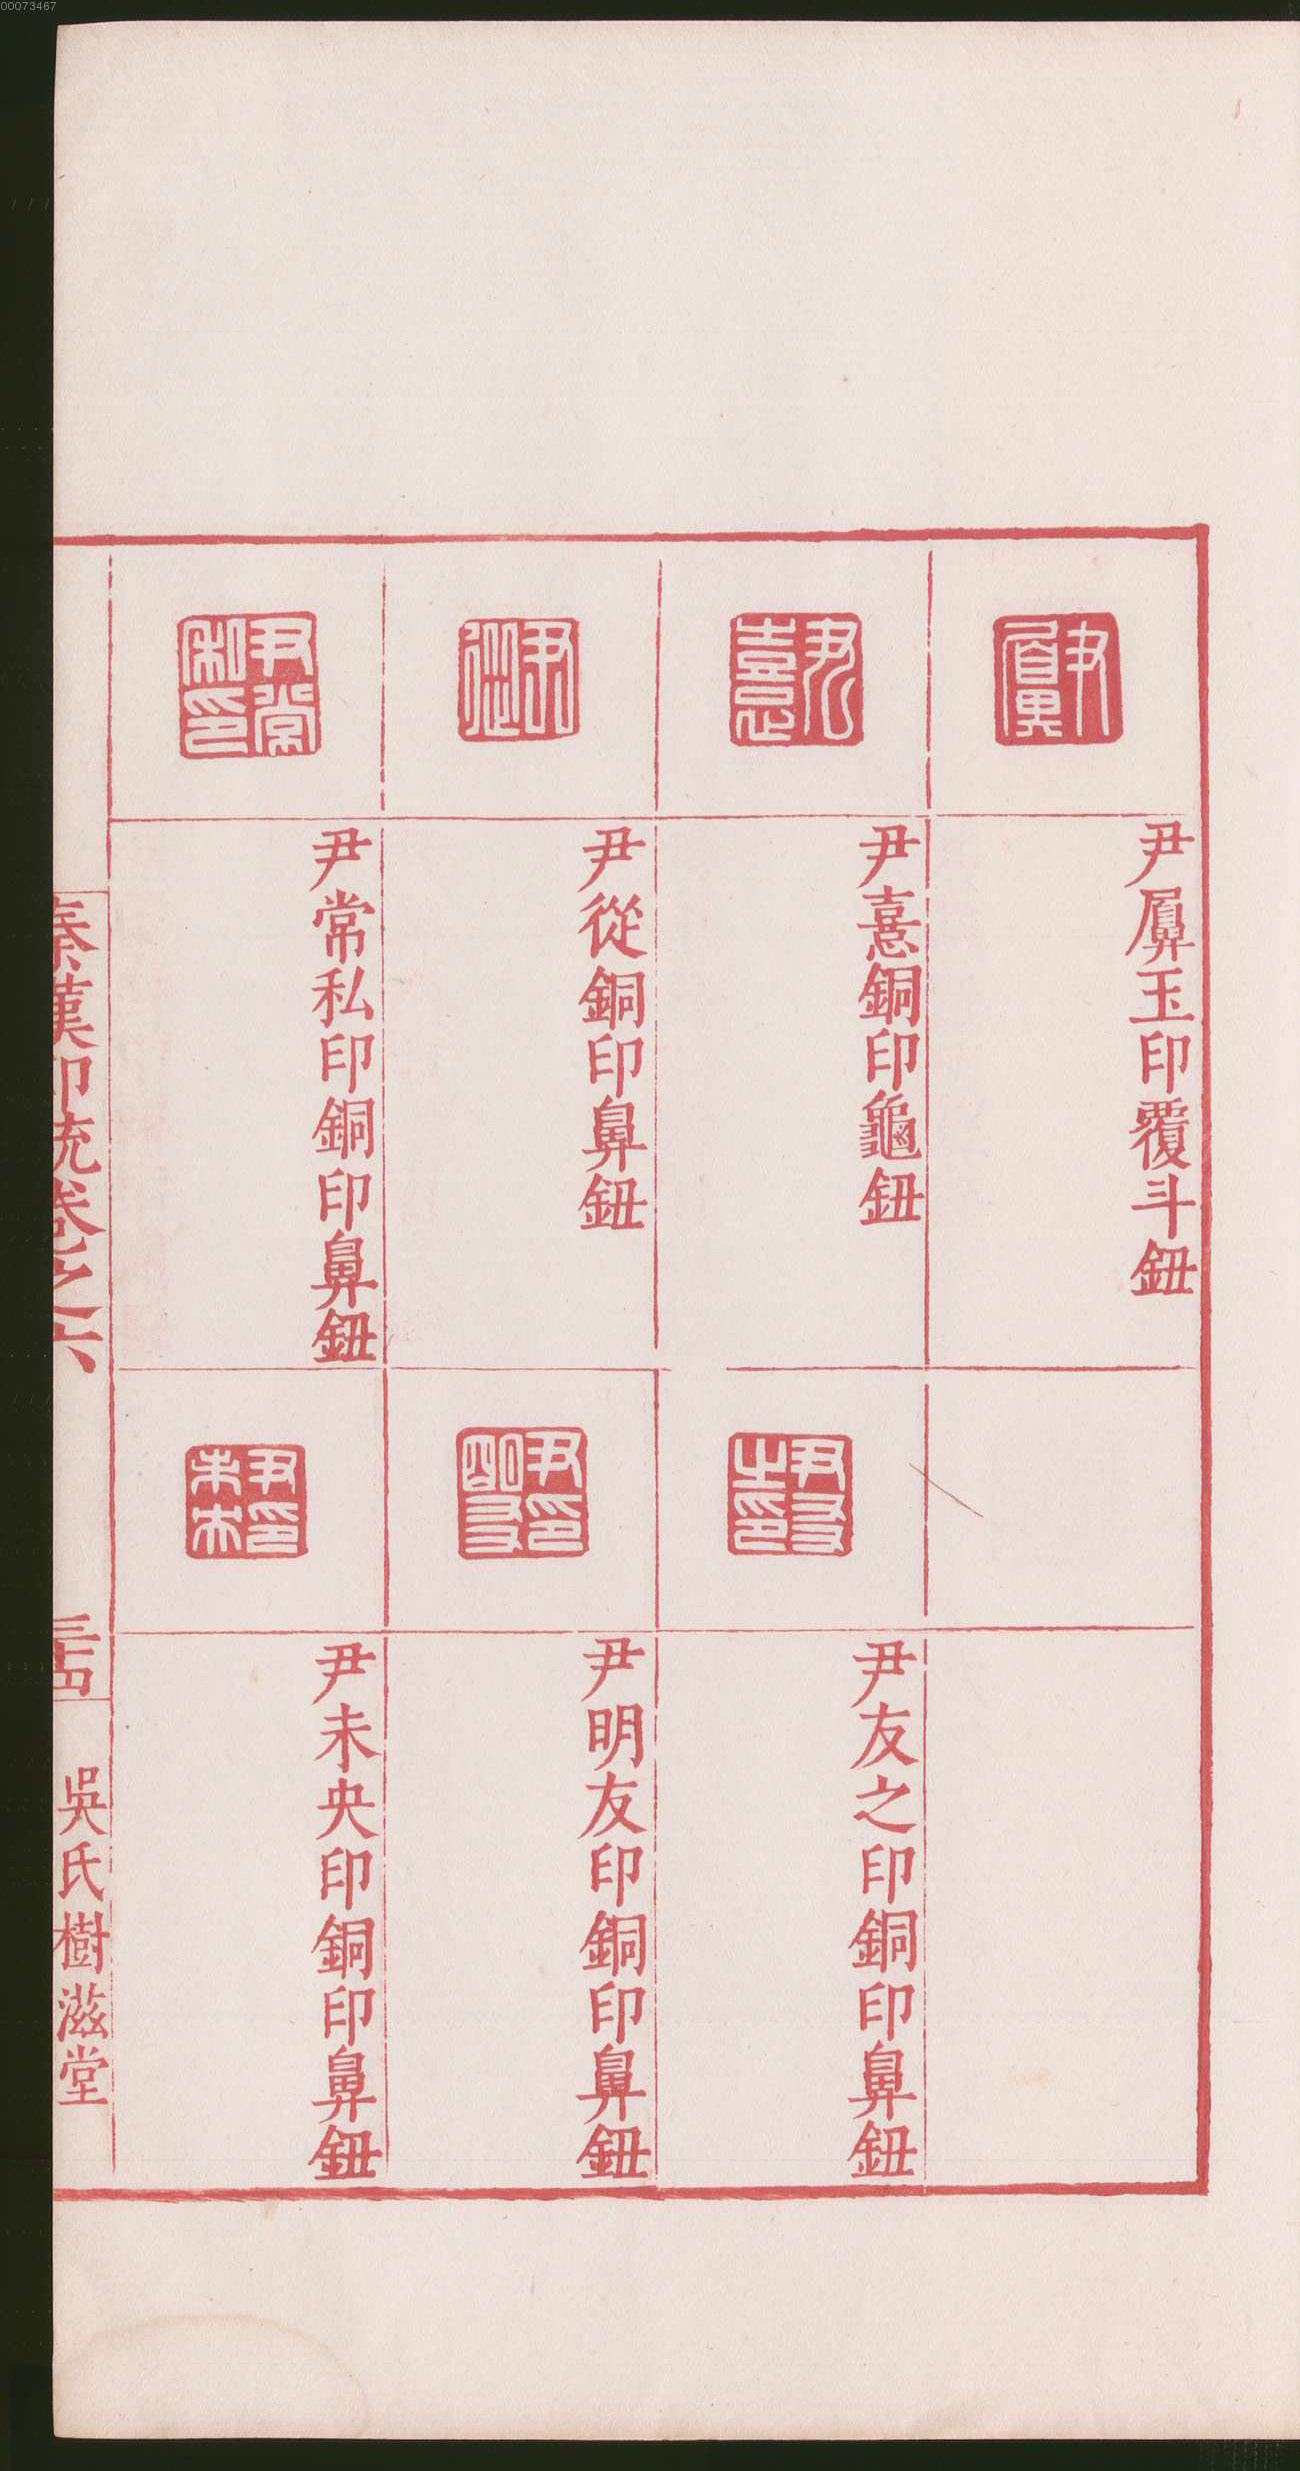 00073467
尹屓玉印覆斗鈕
尹憙銅印龜鈕
尹友之印銅印鼻鈕
尹從銅印鼻鈕
尹明友印銅印鼻鈕
尹常私印銅印鼻鈕
尹未央印銅印鼻鈕
秦漢印統卷之六
吳氏樹滋堂